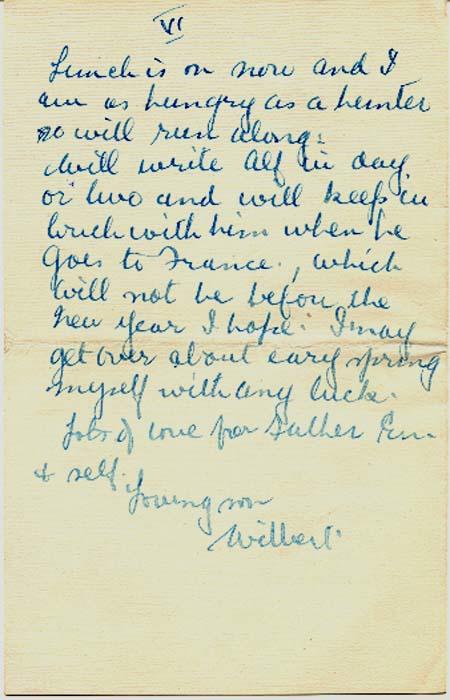 VI
Lunch is on now and I
am as hungry as a hunter
so will run along.
Will write Alf in day
or two and will keep in
touch with him when he
goes to France, which
will not be before the
New Year I hope. I may
get over about eary spring
myself with any luck.
Lots of love for Father Em
& self.
Loving son
Wilbert.